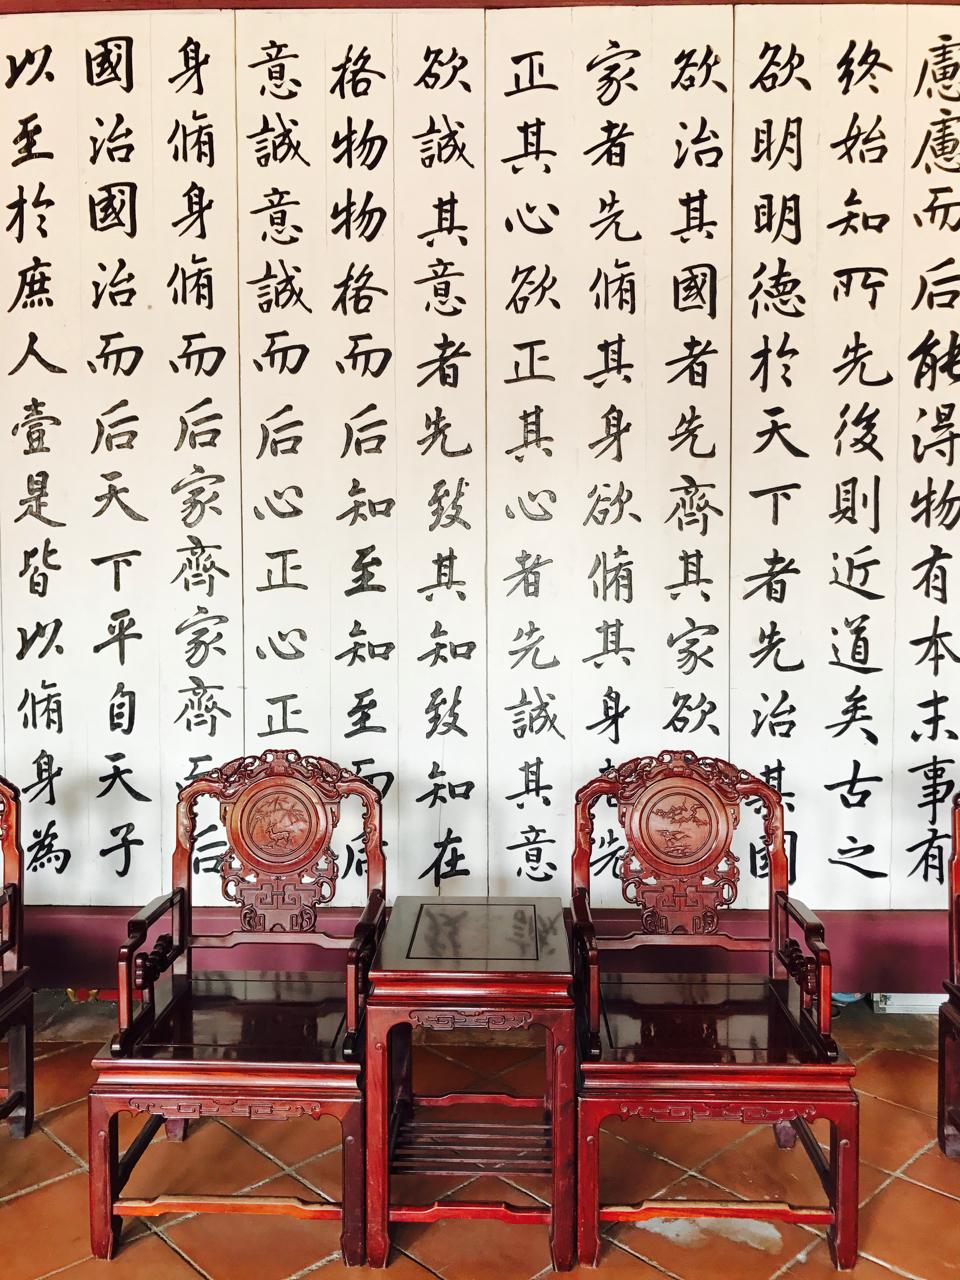 慮慮而后能得物有本末事有
終始知所先後則近道矣古之
欲明明德於天下者先治其國
欲治其國者先齊其家欲
家者先脩其身欲脩其身者先
正其心欲正其心者先誠其意
欲誠其意者先致其知致知在
格物物格而后知至知至而后
意誠意誠而后心正心正
身脩身脩而后家齊家齊而后
國治國治而后天下平自天子
以至於庶人壹是皆以脩身為